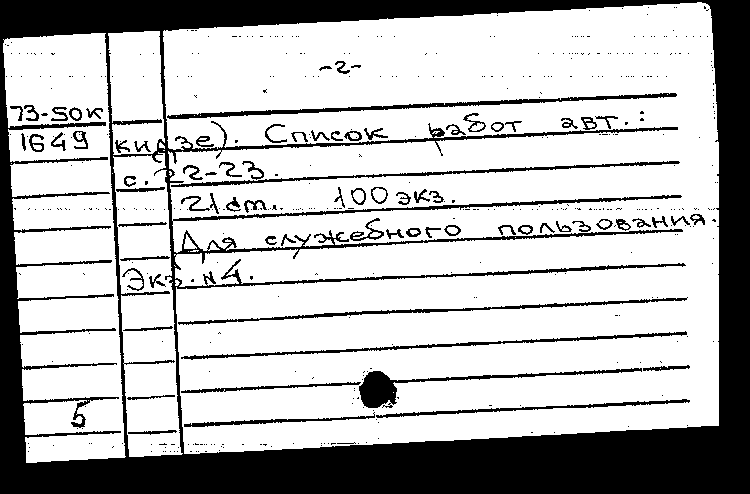 -2-
73-50к
1649 кидзе). Список работ авт.:
с. 22-23.
21 cm. 100 экз.
Для служебного пользования.
Экз. № 4.
5